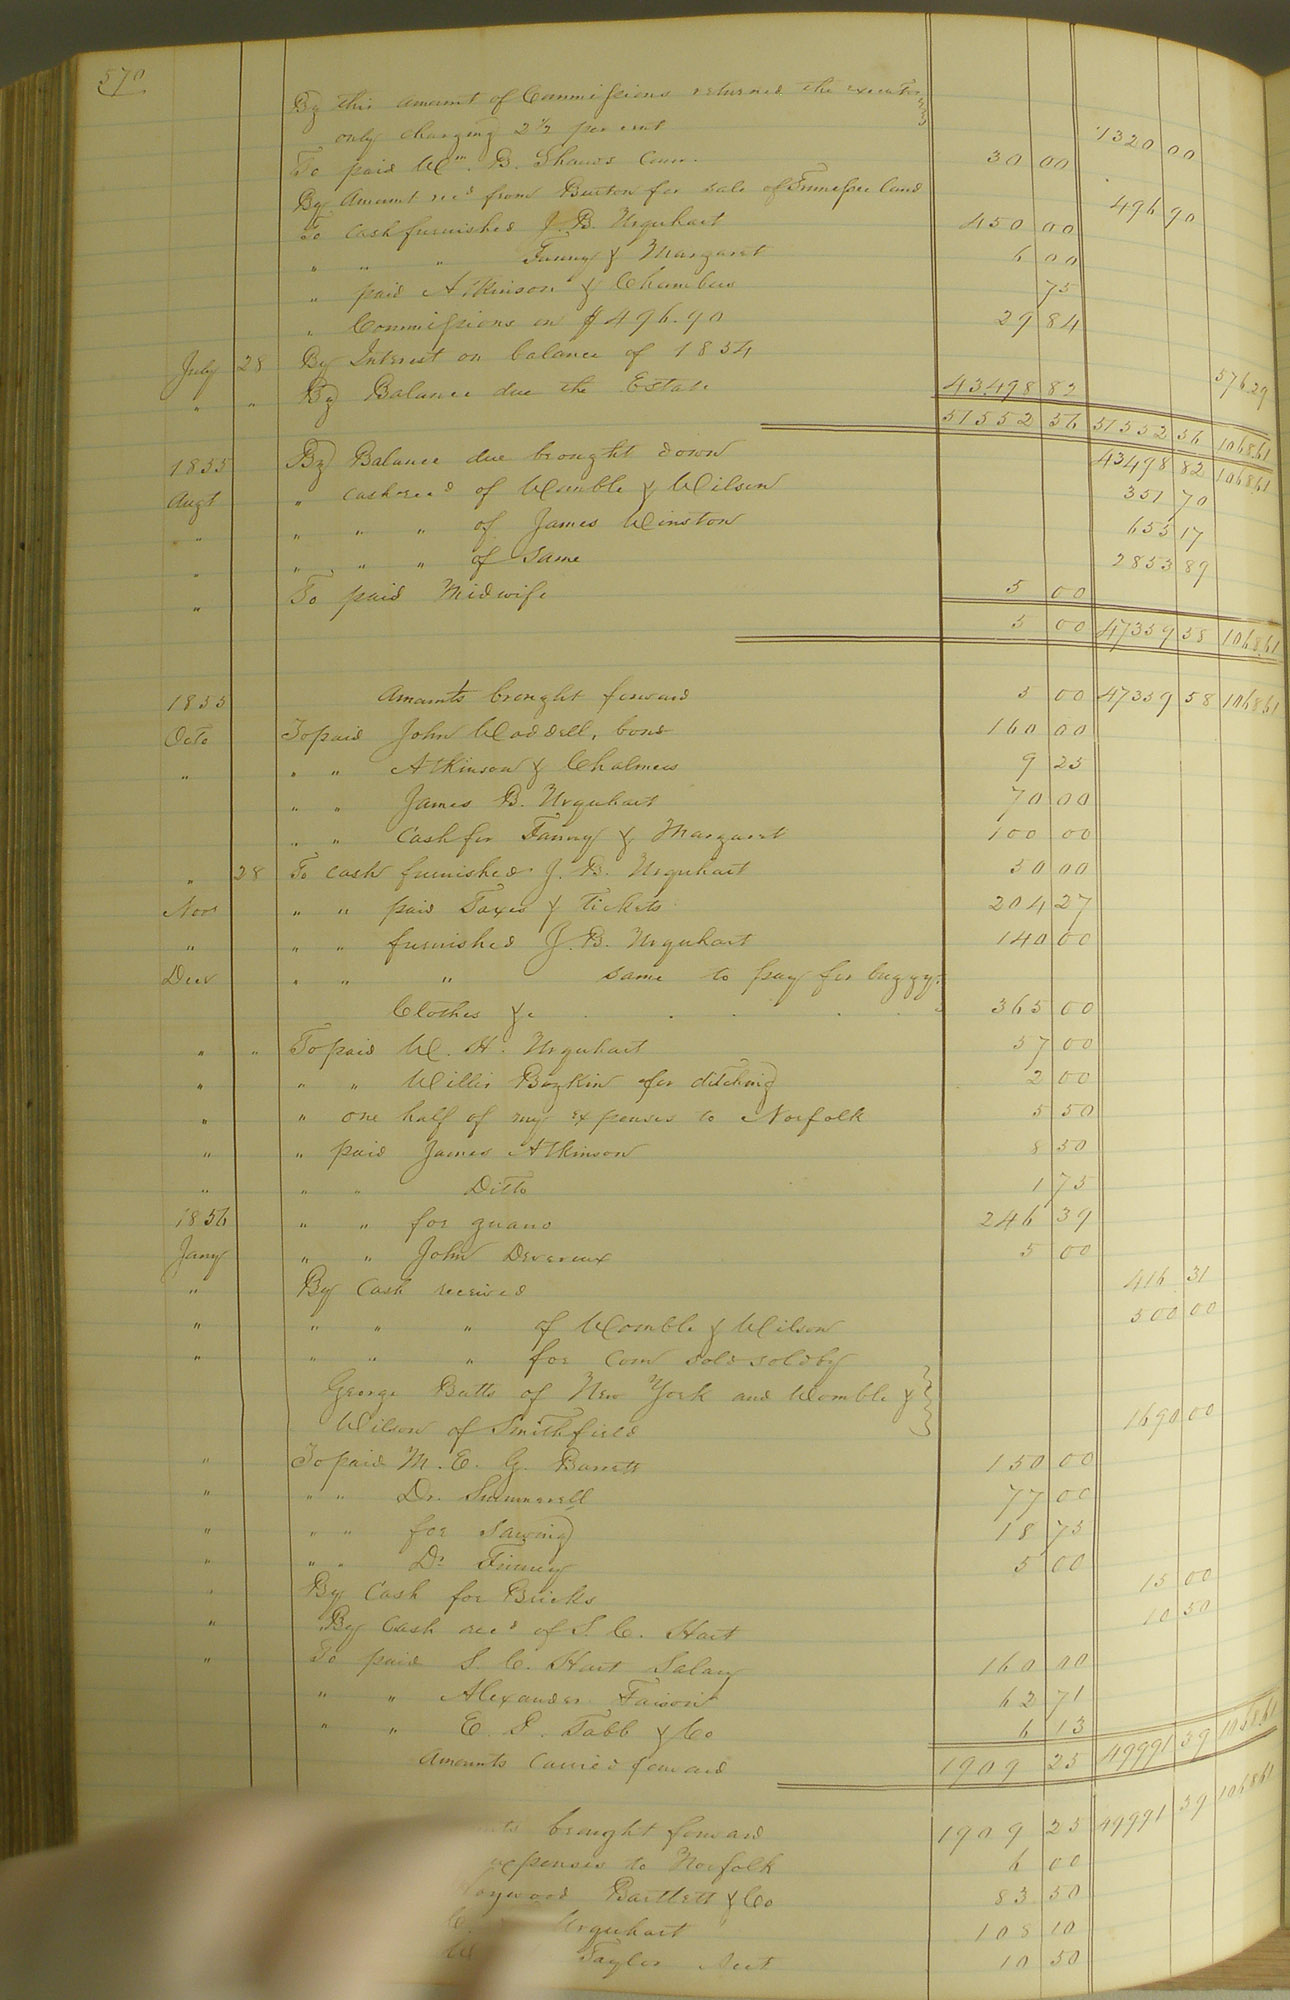 570
By this amount of Commissions returned the executor
only charging 2 1/2 per cent 1320 00
To paid Wm. B. Shaws Com. 30 00
By Amount recd from Barton for sale of Tennessee land 496 90
To cash furnished J. B. Urquhart 450 00
" " " Fanny & Margaret 6 00
" paid Atkinson & Chambers 75
" Commissions on $496.90 29 84
July 28 By Interest on balance of 1854 576.29
" " By Balance due the Estate 43498 82
51552 56 51552 56 1068.61
1855 By Balance due brought down 43498 82 1068.61
Augt " cash recd of Womble & Wilson 351 70
" " " " of James Winston 655 17
" " " " of same 2853 89
" To paid Midwife 5 00
5 00 47359 58 1068.61
1855 Amounts brought forward 5 00 47359 58 1068.61
Octo To paid John Waddell, bond 160 00
" " " Atkinson & Chalmers 9 25
" " James B. Urquhart 70 00
" " Cash for Fanny & Margaret 100 00
" 28 To cash furnished J. B. Urquhart 50 00
Novr " " paid Taxes & Tickets 204 27
" " " furnished J. B. Urquhart 140 00
Decr " " " same to pay for buggy
Clothes &c 365 00
" " To paid W. H. Urquhart 57 00
" " " Willis Bozkin for ditching 2 00
" " one half of my expenses to Norfolk 5 50
" " paid James Atkinson 8 50
" " " Ditto 1 75
1856 " " for guano 246 39
Jany " " John Devereux 5 00
" By Cash received 416 31
" " " " of Womble & Wilson 500 00
" " " " for corn sold sold by
George Batts of New York and Womble &
Wilson of Smithfield 1690 00
" To paid M. E. G. Barrett 150 00
" " " Dr. Summerell 77 00
" " " for Sawing 18 75
" " " Dr Finney 5 00
" By Cash for Bricks 15 00
" By Cash recd of S. C. Hart 10 50
" To paid S. C. Hart Salary 160 00
" " Alexander Faison 62 71
" " E. P. Tabb & Co 6 13
Amounts carried forward 1909 25 49991 39 1068.61
brought forward 1909 25 49991 39 1068.61
expenses to Norfolk 6 00
Bartlett & Co 83 50
Urquhart 108 10
Tayler 10 50